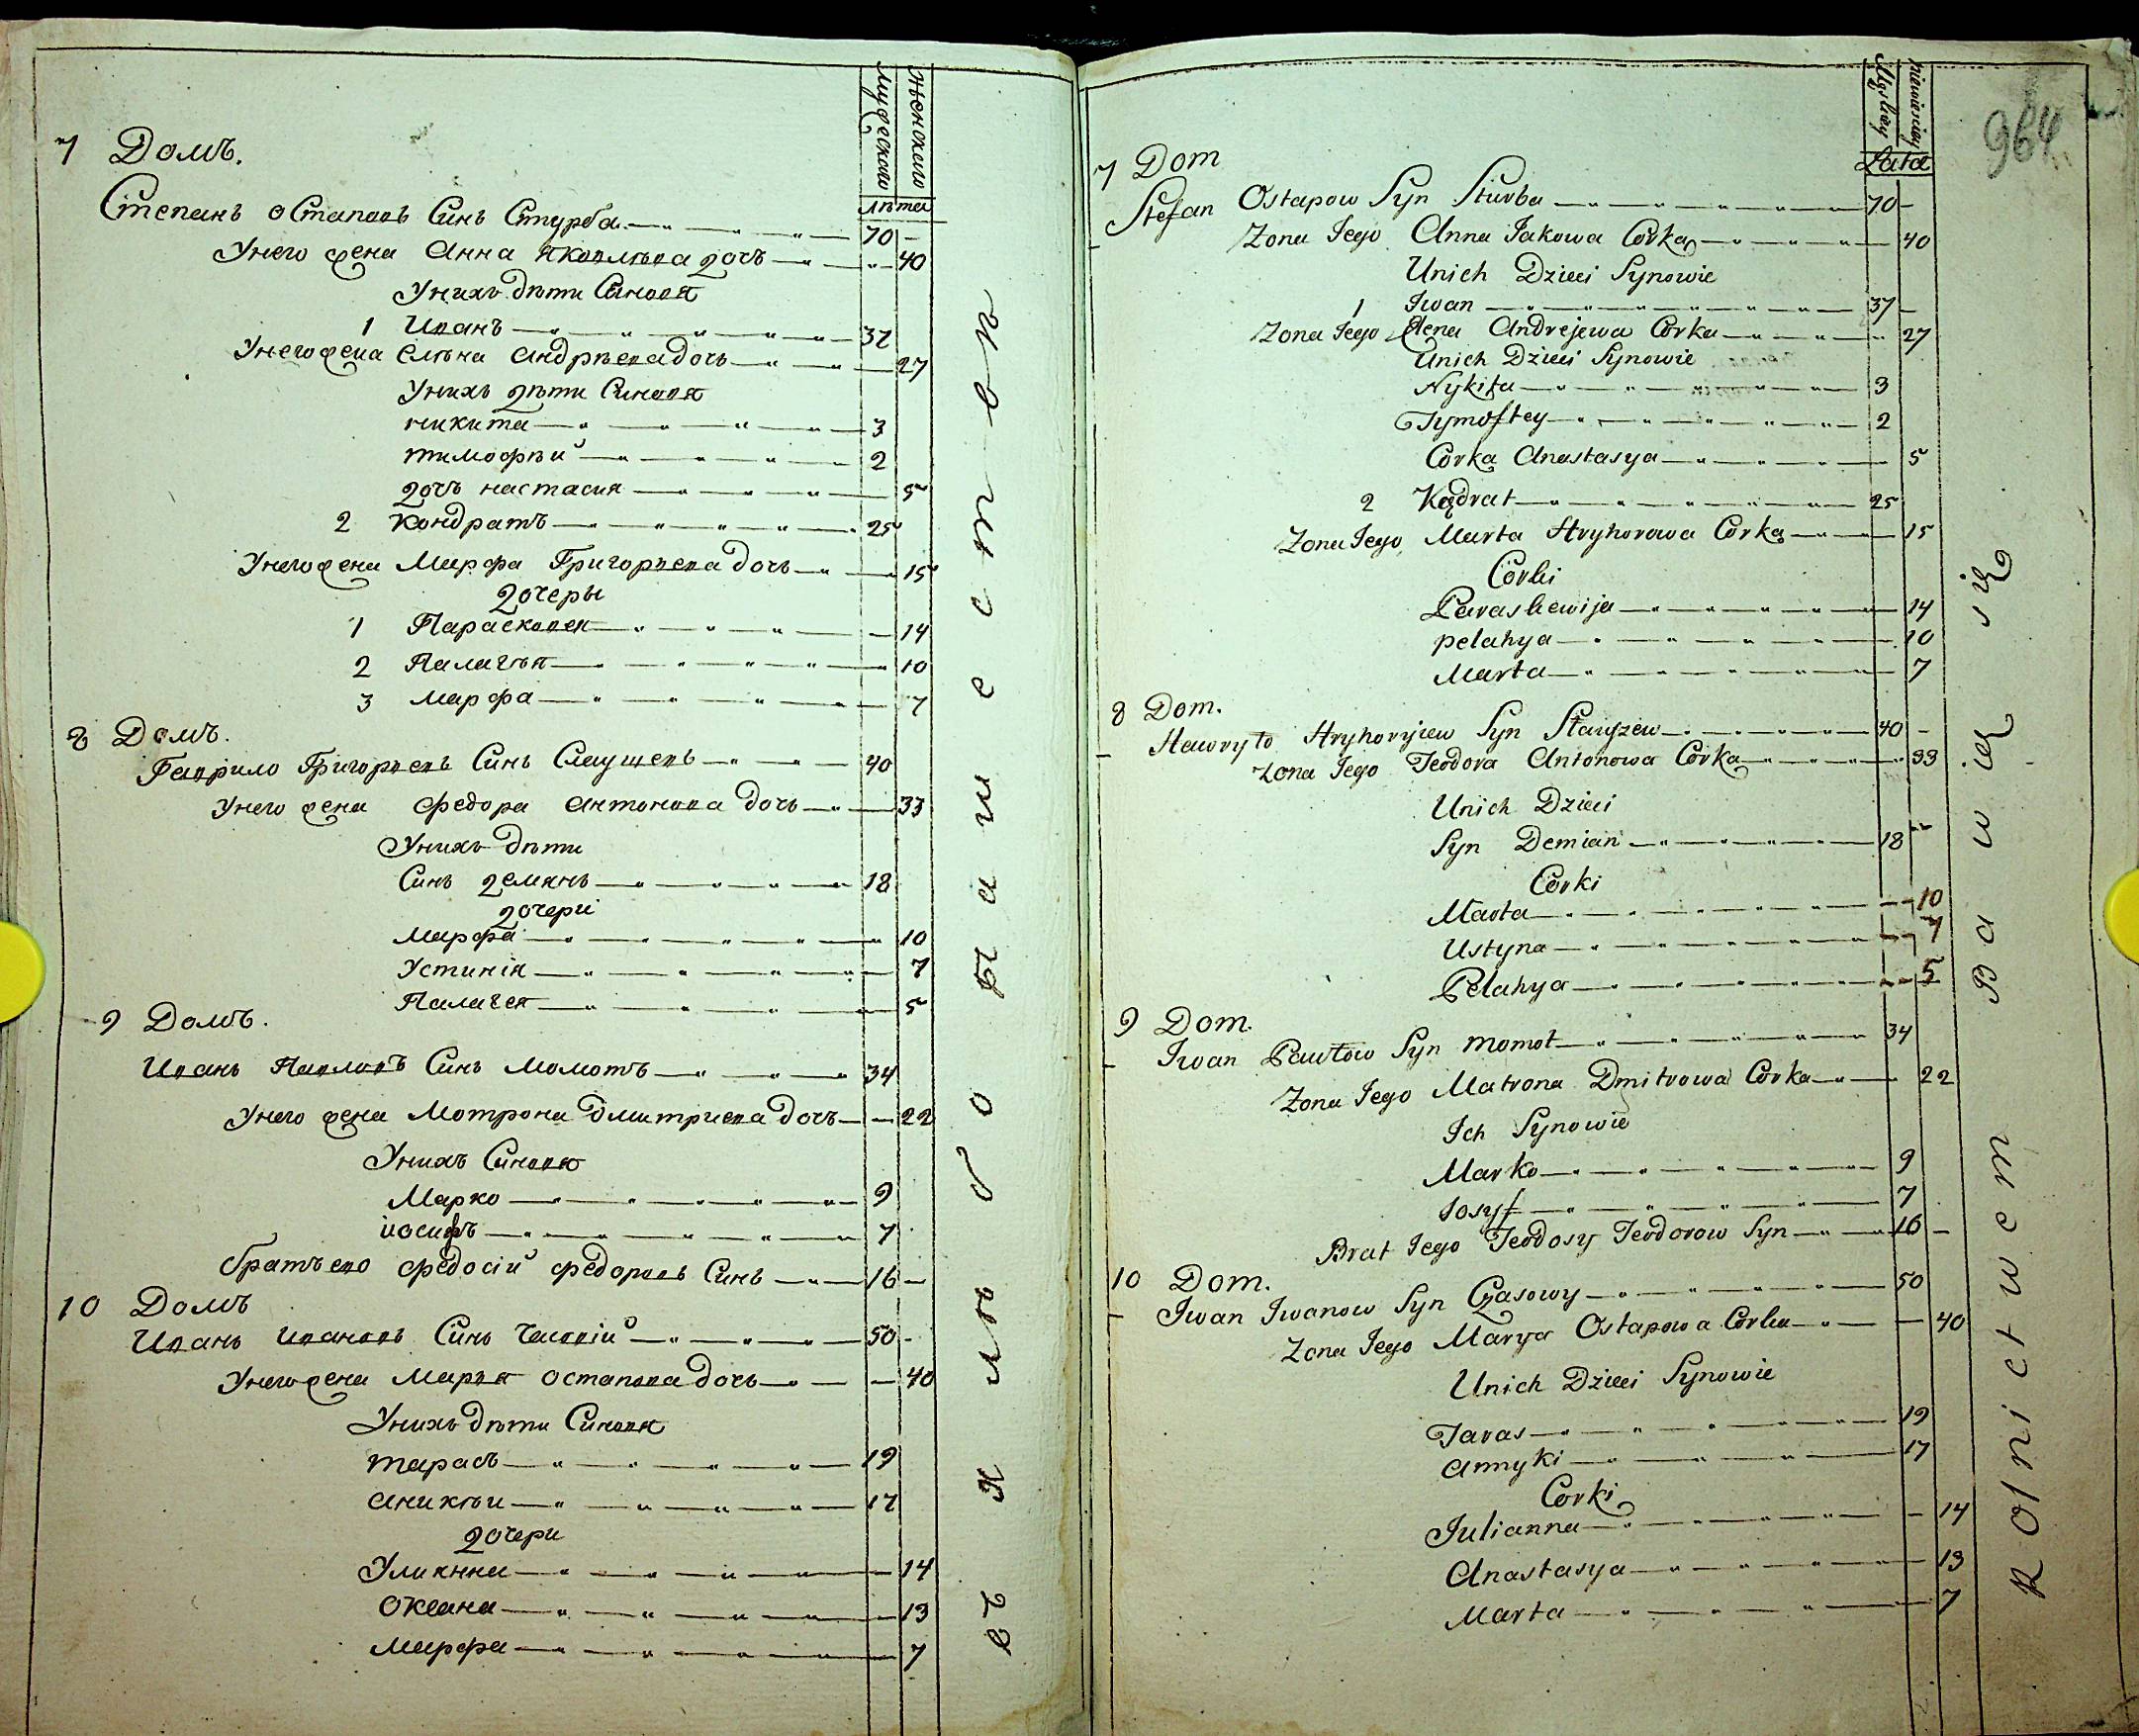 мужеского
женского
лѣта
7 Домъ.
Степанъ остаповъ Синъ Стурба 70
Унего жена Анна яковлѣва дочь 40
Унихъ дѣти Синовя
1 Иванъ 37
Унего жена Елѣна андрѣева дочь 27
Унихъ дѣти Синовя
никита 3
тимофѣй 2
дочь настасия 5
2 кондратъ 25
Унего жена Марфа Григорѣева дочь 15
дочеры
1 Парасковея 14
2 Палагѣя 10
3 марфа 7
8 Домъ.
Гаврило Григорѣевъ Синъ 40
Унего жена федора антонова дочь 33
Унихъ дѣти
Синъ демянъ 18
дочері
марфа 10
Устинія 7
Палагея 5
9 Домъ.
Иванъ Павловъ Синъ момотъ 34
Унего жена Мотрона дмитриева дочь 22
Унихъ Синовя
Марко 9
иосифъ 7
братъ ево федосій федоровъ Синъ 16
10 Домъ
Иванъ ивановъ Синъ Часовій 50
Унего жена Маря остапова дочь 40
Унихъ дѣти Синовя
тарасъ 19
аникѣи 17
дочери
Улиянна 14
Оксана 13
марфа 7
въ хлѣбопашестве
Męskiey
niewieściey
Lata
964
7 Dom
Stefan Ostapow Syn Sturba 70
Zona Jego Anna Jakowa Corka 40
Unich Dzieci Synowie
1 Jwan 37
Zona Jego Elena Andrejewa Corka 27
Unich Dzieci Synowie
Nykita 3
Tymoftey 2
Corka Anastasya 5
2 Kądrat 25
Zona Jego Marta Hryhorowa Corka 15
Corki
Paraskewija 14
pelahya 10
Marta 7
8 Dom.
Hawryło Hryhoryiew Syn 40
Zona Jego Teodora Antonowa Corka 33
Unich Dzieci
Syn Demian 18
Corki
Marta 10
Ustyna 7
Pelahya 5
9 Dom.
Jwan Pawłow Syn momot 34
Zona Jego Matrona Dmitrowa Corka 22
Ich Synowie
Marko 9
Iosyf 7
Brat Jego Teodosy Teodorow Syn 16
10 Dom.
Jwan Jwanow Syn Czasowy 50
Zona Jego Marya Ostapowa Corka 40
Unich Dzieci Synowie
Taras 19
annyki 17
Corki
Julianna 14
Anastasya 13
Marta 7
Rolnictwem Bawią się